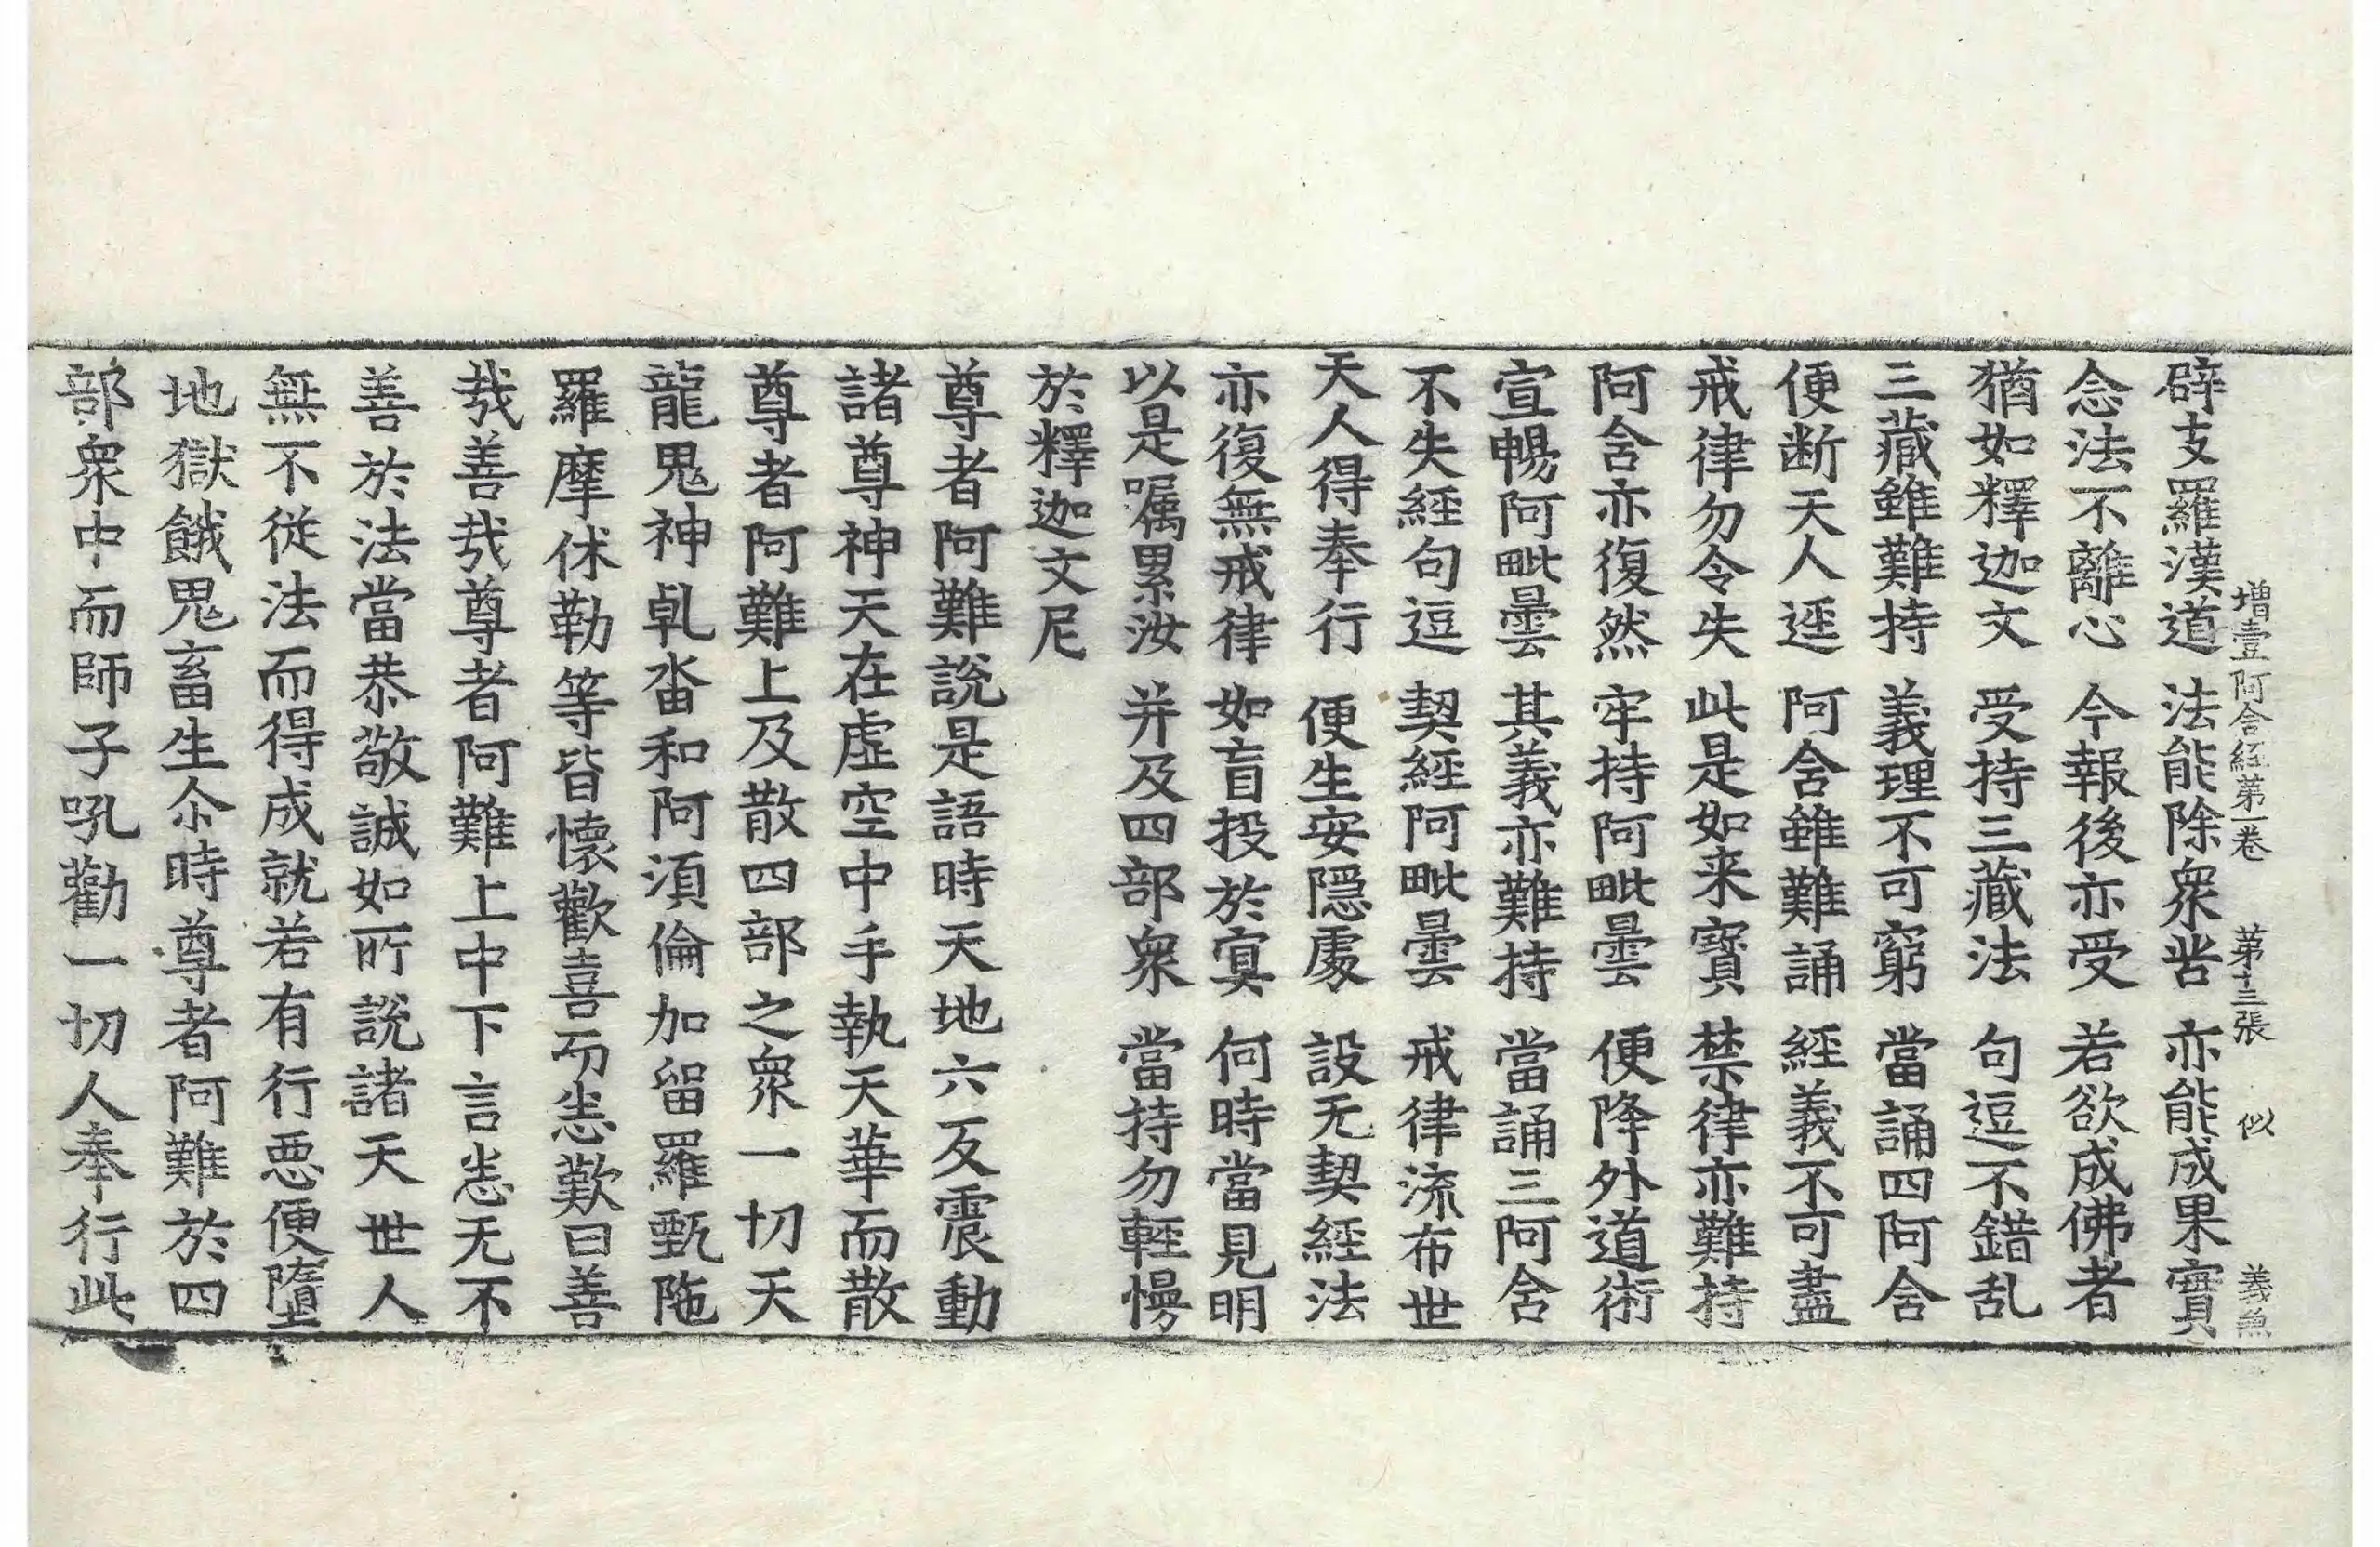 增壹阿含經第一卷 第十三張 似 義魚
辟支羅漢道 法能除衆苦 亦能成果實
念法不離心 今報後亦受 若欲成佛者
猶如釋迦文 受持三藏法 句逗不錯乱
三藏雖難持 義理不可窮 當誦四阿含
便断天人逕 阿含雖難誦 經義不可盡
戒律勿令失 此是如来寶 禁律亦難持
阿含亦復然 牢持阿毗曇 便降外道術
宣暢阿毗曇 其義亦難持 當誦三阿含
不失經句逗 契經阿毗曇 戒律流布世
天人得奉行 便生安隱處 設无契經法
亦復無戒律 如盲投於冥 何時當見明
以是囑累汝 并及四部衆 當持勿輕慢
於釋迦文尼
尊者阿難說是語時天地六反震動
諸尊神天在虛空中手執天華而散
尊者阿難上及散四部之衆一切天
龍鬼神乹沓和阿須倫加留羅甄陁
羅摩休勒等皆懷歡喜而悉歎曰善
㢤善㢤尊者阿難上中下言悉无不
善於法當恭敬誠如所說諸天世人
無不從法而得成就若有行惡便墮
地獄餓鬼畜生尒時尊者阿難於四
部衆中而師子吼勸一切人奉行此